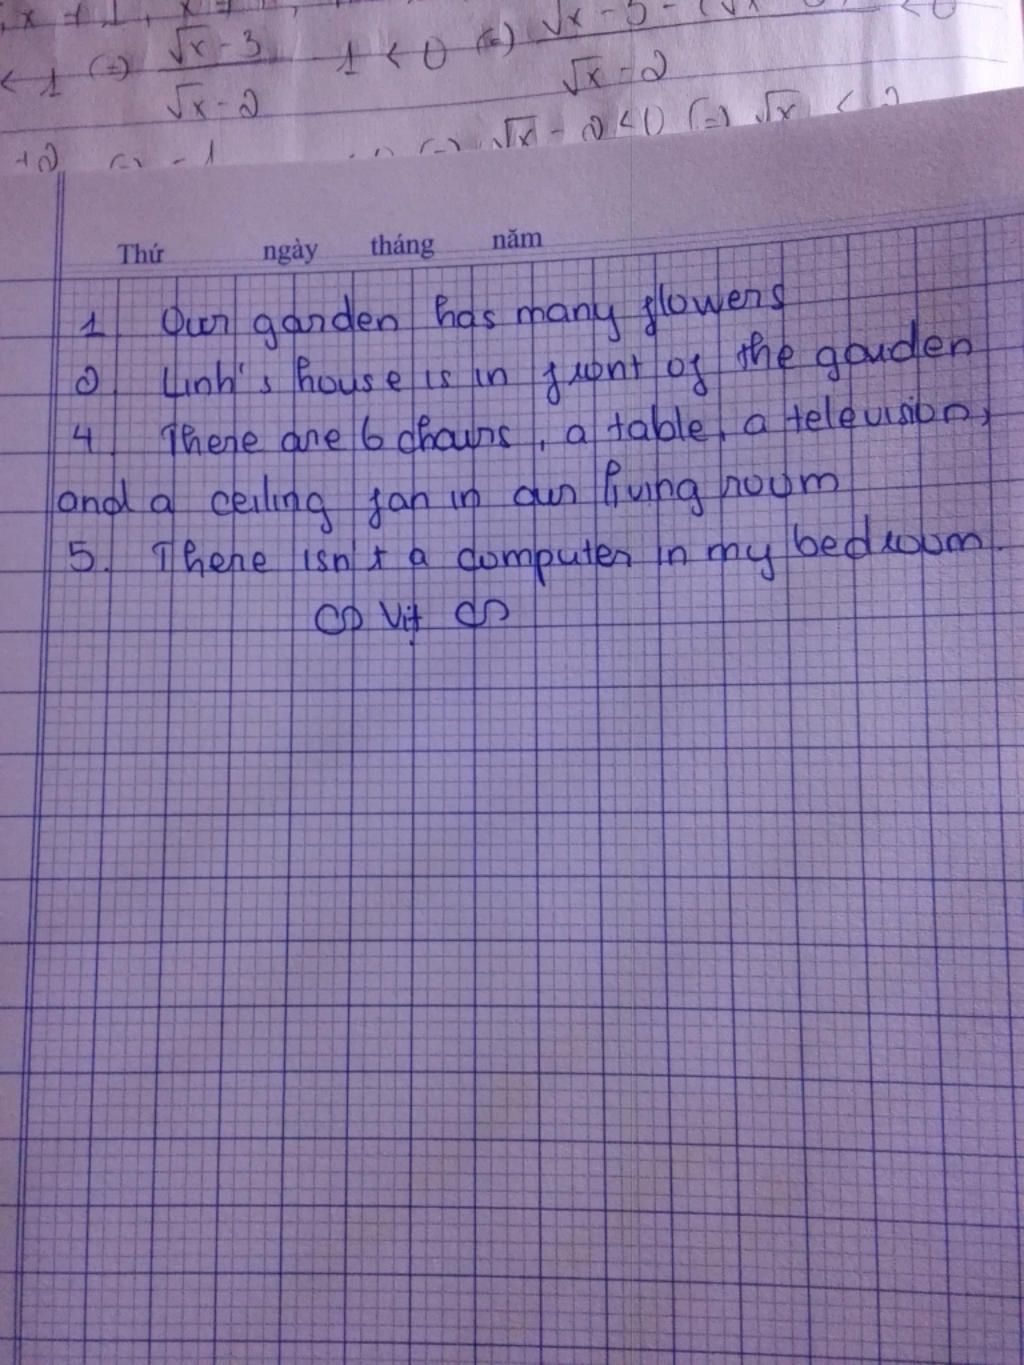 < 1 (=) √x - 3 / √x - 2 - 1 < 0 (=) √x - 3 - (√x / √x - 2 < 0
(=) √x - 2 < 0 (=) √x < 2
Thứ ngày tháng năm
1 Our garden has many flowers
2 Linh's house is in front of the garden
4 There are 6 chairs, a table, a television,
and a ceiling fan in our living room
5. There isn't a computer in my bedroom.
Vịt